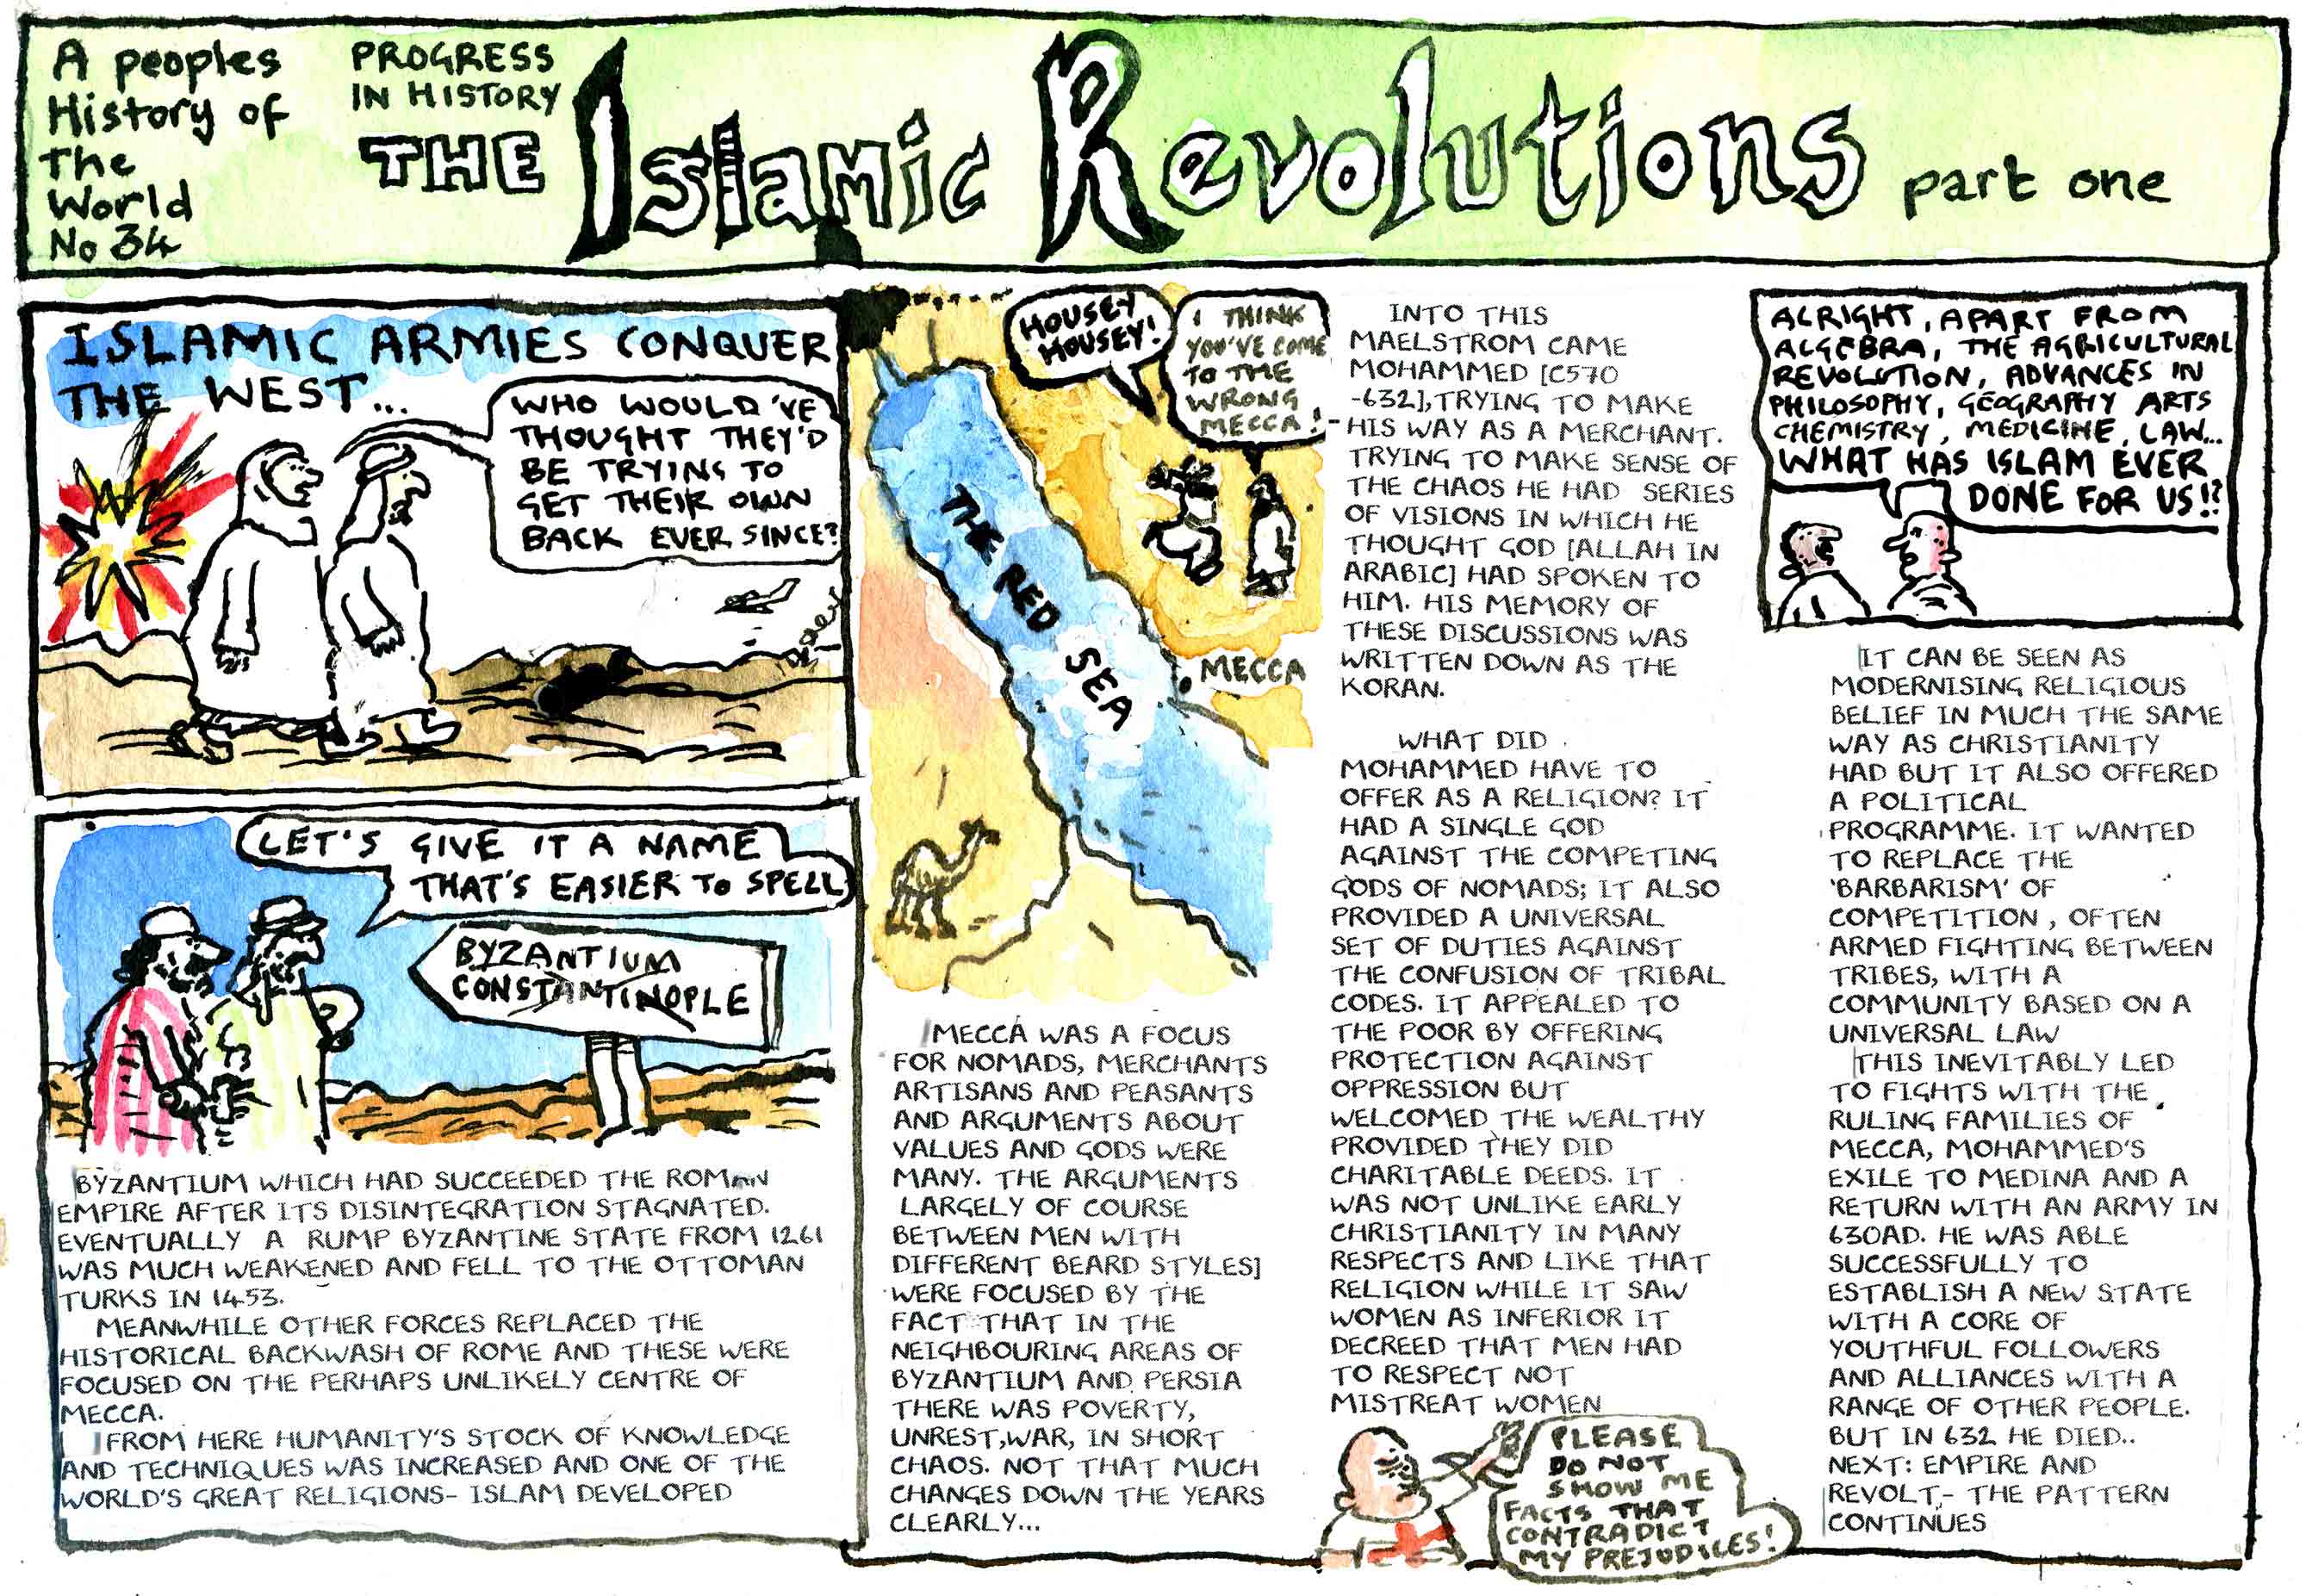 A peoples
History of
The
World
No 34
PROGRESS
IN HISTORY
THE Islamic Revolutions part one
ISLAMIC ARMIES CONQUER
THE WEST...
WHO WOULD'VE
THOUGHT THEY'D
BE TRYING TO
GET THEIR OWN
BACK EVER SINCE?
LET'S GIVE IT A NAME
THAT'S EASIER TO SPELL
BYZANTIUM
CONSTANTINOPLE
BYZANTIUM WHICH HAD SUCCEEDED THE ROMAN
EMPIRE AFTER ITS DISINTEGRATION STAGNATED.
EVENTUALLY A RUMP BYZANTINE STATE FROM 1261
WAS MUCH WEAKENED AND FELL TO THE OTTOMAN
TURKS IN 1453.
MEANWHILE OTHER FORCES REPLACED THE
HISTORICAL BACKWASH OF ROME AND THESE WERE
FOCUSED ON THE PERHAPS UNLIKELY CENTRE OF
MECCA.
FROM HERE HUMANITY'S STOCK OF KNOWLEDGE
AND TECHNIQUES WAS INCREASED AND ONE OF THE
WORLD'S GREAT RELIGIONS- ISLAM DEVELOPED
HOUSEY
HOUSEY!
I THINK
YOU'VE COME
TO THE
WRONG
MECCA!
THE RED SEA
MECCA
MECCA WAS A FOCUS
FOR NOMADS, MERCHANTS
ARTISANS AND PEASANTS
AND ARGUMENTS ABOUT
VALUES AND GODS WERE
MANY. THE ARGUMENTS
LARGELY OF COURSE
BETWEEN MEN WITH
DIFFERENT BEARD STYLES]
WERE FOCUSED BY THE
FACT THAT IN THE
NEIGHBOURING AREAS OF
BYZANTIUM AND PERSIA
THERE WAS POVERTY,
UNREST,WAR, IN SHORT
CHAOS. NOT THAT MUCH
CHANGES DOWN THE YEARS
CLEARLY...
INTO THIS
MAELSTROM CAME
MOHAMMED [C570
-632],TRYING TO MAKE
HIS WAY AS A MERCHANT.
TRYING TO MAKE SENSE OF
THE CHAOS HE HAD SERIES
OF VISIONS IN WHICH HE
THOUGHT GOD [ALLAH IN
ARABIC] HAD SPOKEN TO
HIM. HIS MEMORY OF
THESE DISCUSSIONS WAS
WRITTEN DOWN AS THE
KORAN.
WHAT DID
MOHAMMED HAVE TO
OFFER AS A RELIGION? IT
HAD A SINGLE GOD
AGAINST THE COMPETING
GODS OF NOMADS; IT ALSO
PROVIDED A UNIVERSAL
SET OF DUTIES AGAINST
THE CONFUSION OF TRIBAL
CODES. IT APPEALED TO
THE POOR BY OFFERING
PROTECTION AGAINST
OPPRESSION BUT
WELCOMED THE WEALTHY
PROVIDED THEY DID
CHARITABLE DEEDS. IT
WAS NOT UNLIKE EARLY
CHRISTIANITY IN MANY
RESPECTS AND LIKE THAT
RELIGION WHILE IT SAW
WOMEN AS INFERIOR IT
DECREED THAT MEN HAD
TO RESPECT NOT
MISTREAT WOMEN
PLEASE
DO NOT
SHOW ME
FACTS THAT
CONTRADICT
MY PREJUDICES!
ALRIGHT, APART FROM
ALGEBRA, THE AGRICULTURAL
REVOLUTION, ADVANCES IN
PHILOSOPHY, GEOGRAPHY ARTS
CHEMISTRY, MEDICINE, LAW...
WHAT HAS ISLAM EVER
DONE FOR US!?
IT CAN BE SEEN AS
MODERNISING RELIGIOUS
BELIEF IN MUCH THE SAME
WAY AS CHRISTIANITY
HAD BUT IT ALSO OFFERED
A POLITICAL
PROGRAMME. IT WANTED
TO REPLACE THE
'BARBARISM' OF
COMPETITION , OFTEN
ARMED FIGHTING BETWEEN
TRIBES, WITH A
COMMUNITY BASED ON A
UNIVERSAL LAW
THIS INEVITABLY LED
TO FIGHTS WITH THE
RULING FAMILIES OF
MECCA, MOHAMMED'S
EXILE TO MEDINA AND A
RETURN WITH AN ARMY IN
630AD. HE WAS ABLE
SUCCESSFULLY TO
ESTABLISH A NEW STATE
WITH A CORE OF
YOUTHFUL FOLLOWERS
AND ALLIANCES WITH A
RANGE OF OTHER PEOPLE.
BUT IN 632 HE DIED..
NEXT: EMPIRE AND
REVOLT,- THE PATTERN
CONTINUES